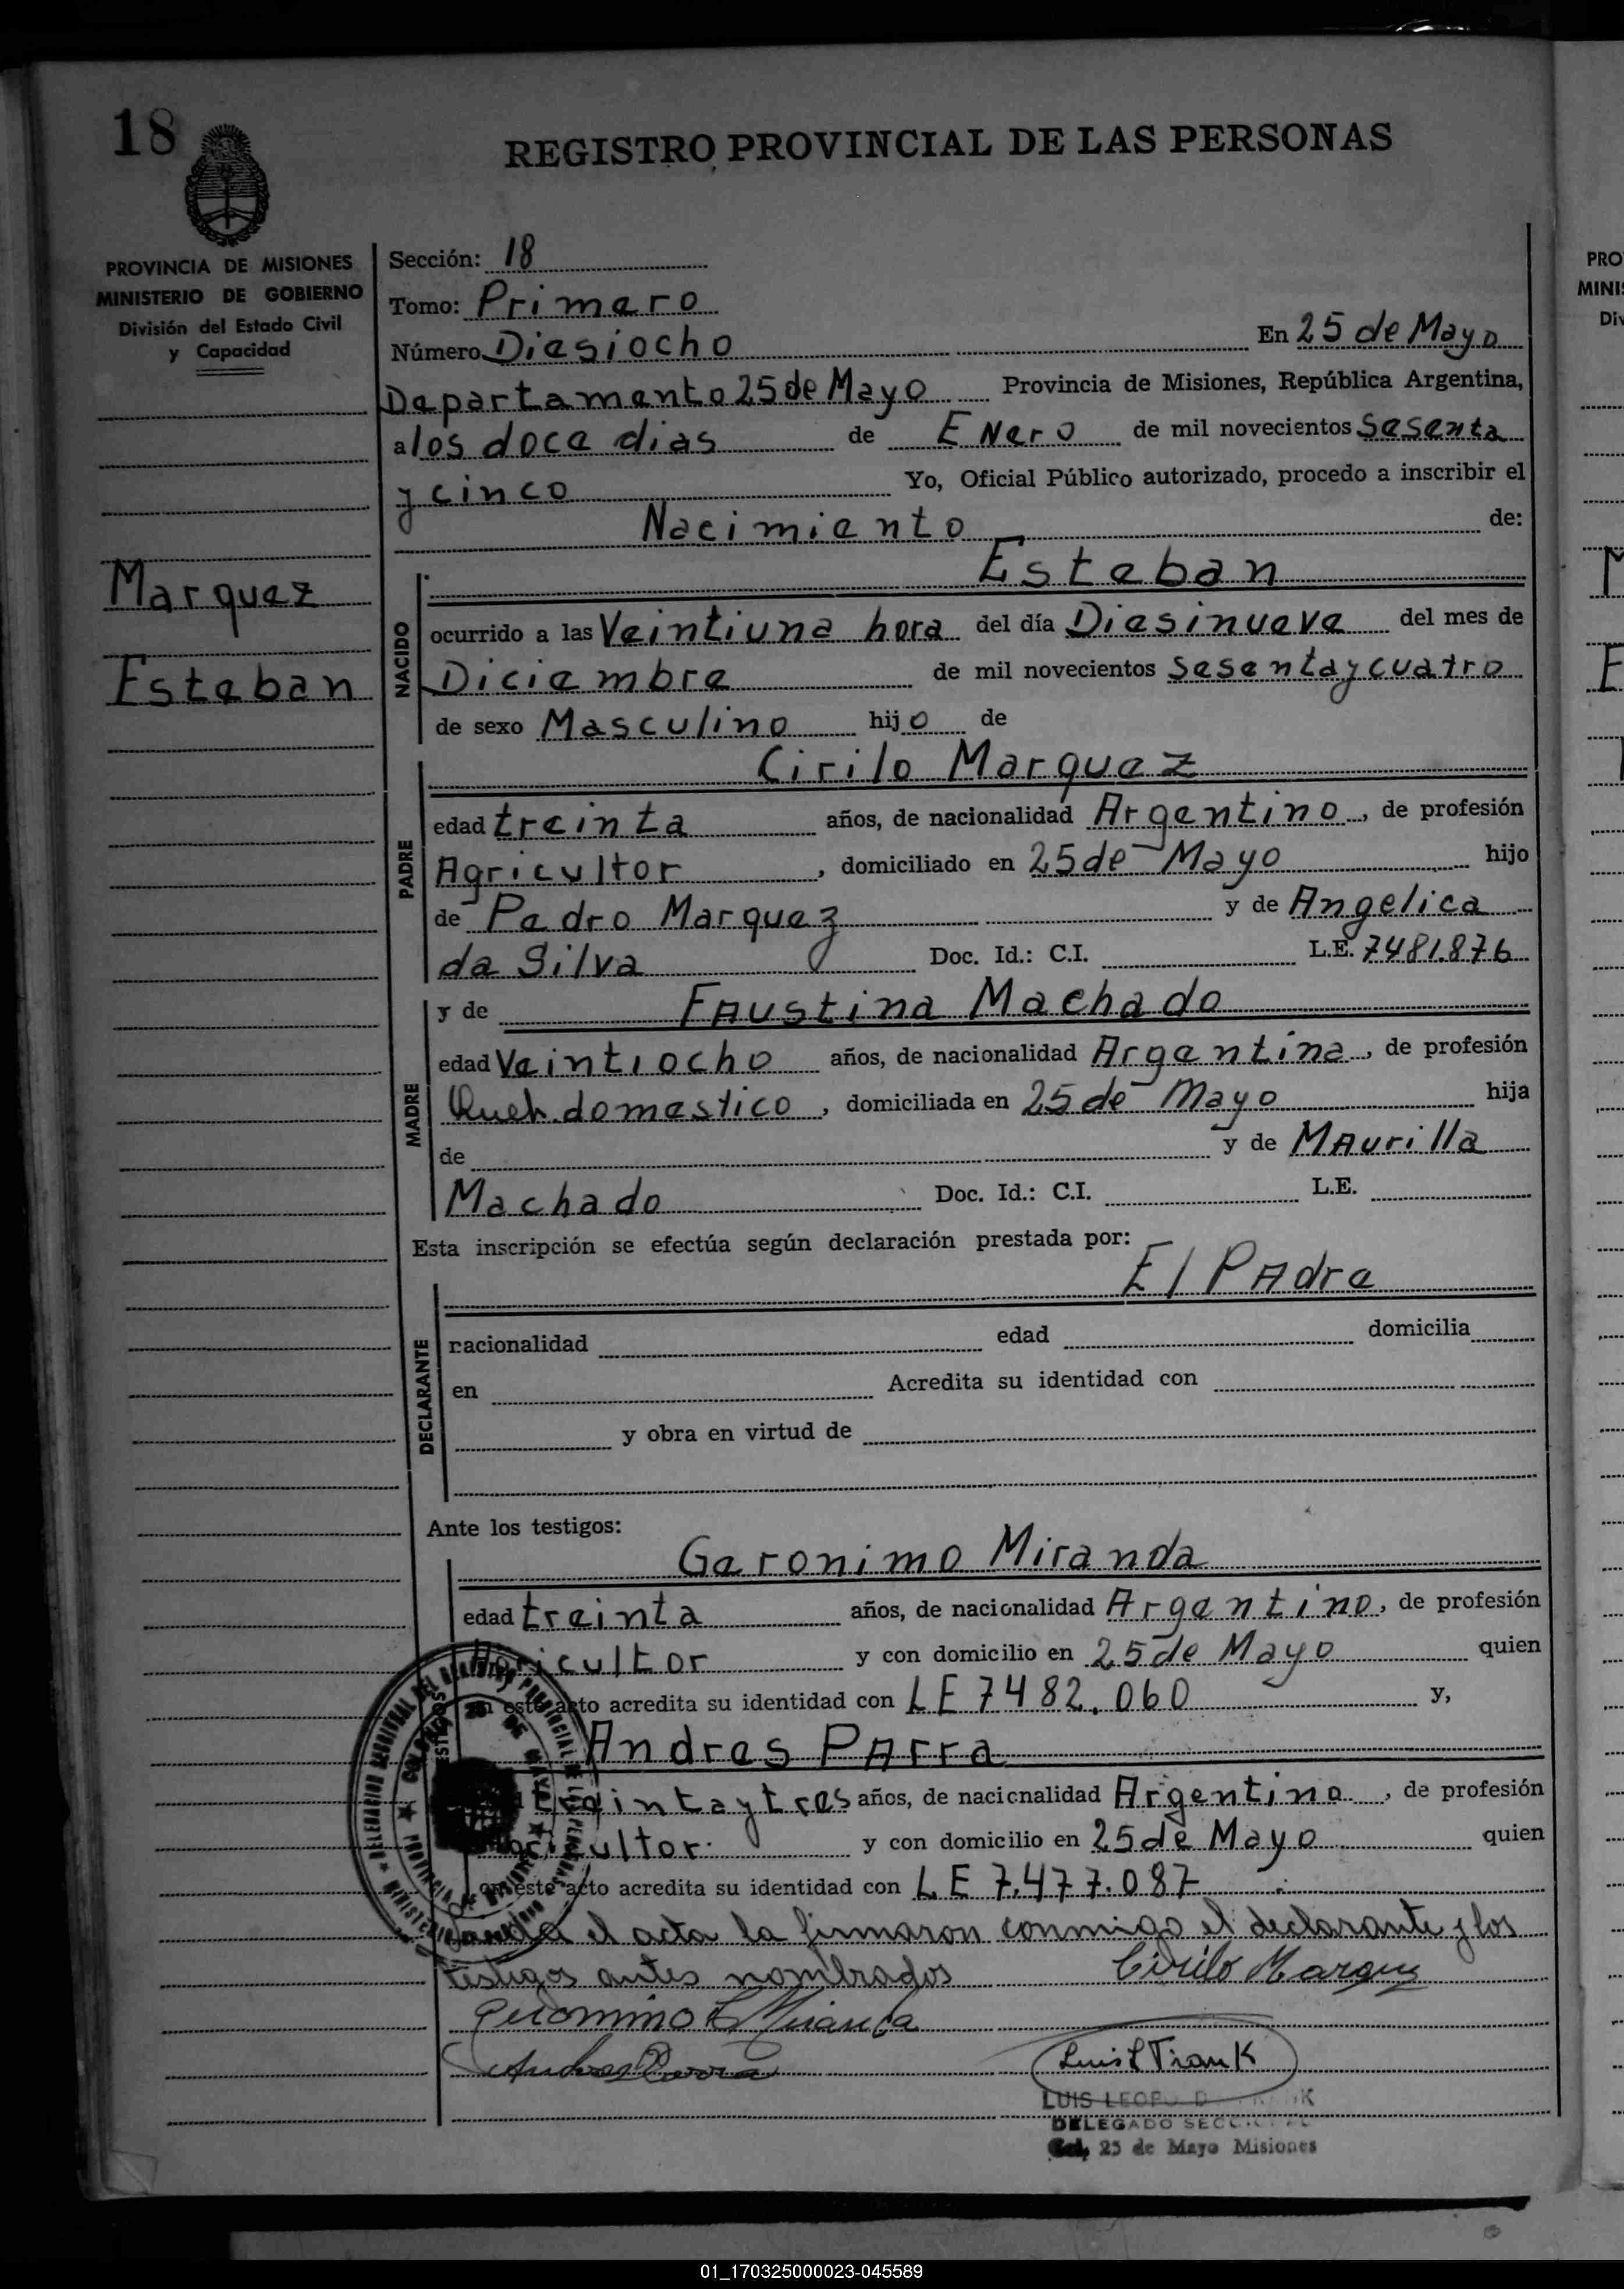 18
REGISTRO PROVINCIAL DE LAS PERSONAS
PROVINCIA DE MISIONES
MINISTERIO DE GOBIERNO
División del Estado Civil
y Capacidad
Marquez
Esteban
Sección: 18
Tomo: Primero
Número Diesiocho En 25 de Mayo
Departamento 25 de Mayo Provincia de Misiones, República Argentina,
a los doce dias de ENero de mil novecientos Sesenta
y cinco Yo, Oficial Público autorizado, procedo a inscribir el
Nacimiento de:
NACIDO
Esteban
ocurrido a las Veintiuna hora del día Diesinueve del mes de
Diciembre de mil novecientos Sesentaycuatro
de sexo Masculino hijo de
PADRE
Cirilo Marquez
edad treinta años, de nacionalidad Argentino, de profesión
Agricultor, domiciliado en 25 de Mayo hijo
de Pedro Marquez y de Angelica
da Silva Doc. Id.: C.I. L.E. 7481.876
MADRE
y de FAustina Machado
edad Veintiocho años, de nacionalidad Argentina, de profesión
Queh. domestico, domiciliada en 25 de Mayo hija
de y de MAurilla
Machado Doc. Id.: C.I. L.E.
Esta inscripción se efectúa según declaración prestada por:
El PAdre
DECLARANTE
nacionalidad edad domicilia
en Acredita su identidad con
y obra en virtud de
Ante los testigos:
Geronimo Miranda
edad treinta años, de nacionalidad Argentino, de profesión
Agricultor y con domicilio en 25 de Mayo quien
en este acto acredita su identidad con LE 7482.060 y,
Andres PArra
treintaytres años, de nacionalidad Argentino, de profesión
Agricultor. y con domicilio en 25 de Mayo quien
en este acto acredita su identidad con L.E 7.477.087
el acta la firmaron conmigo el declarante y los
testigos antes nombrados Cirilo Marquez
Geronimo Miranda
Andres Parra Luis L Frank
LUIS
DELEGADO
Col. 25 de Mayo Misiones
01_170325000023-045589